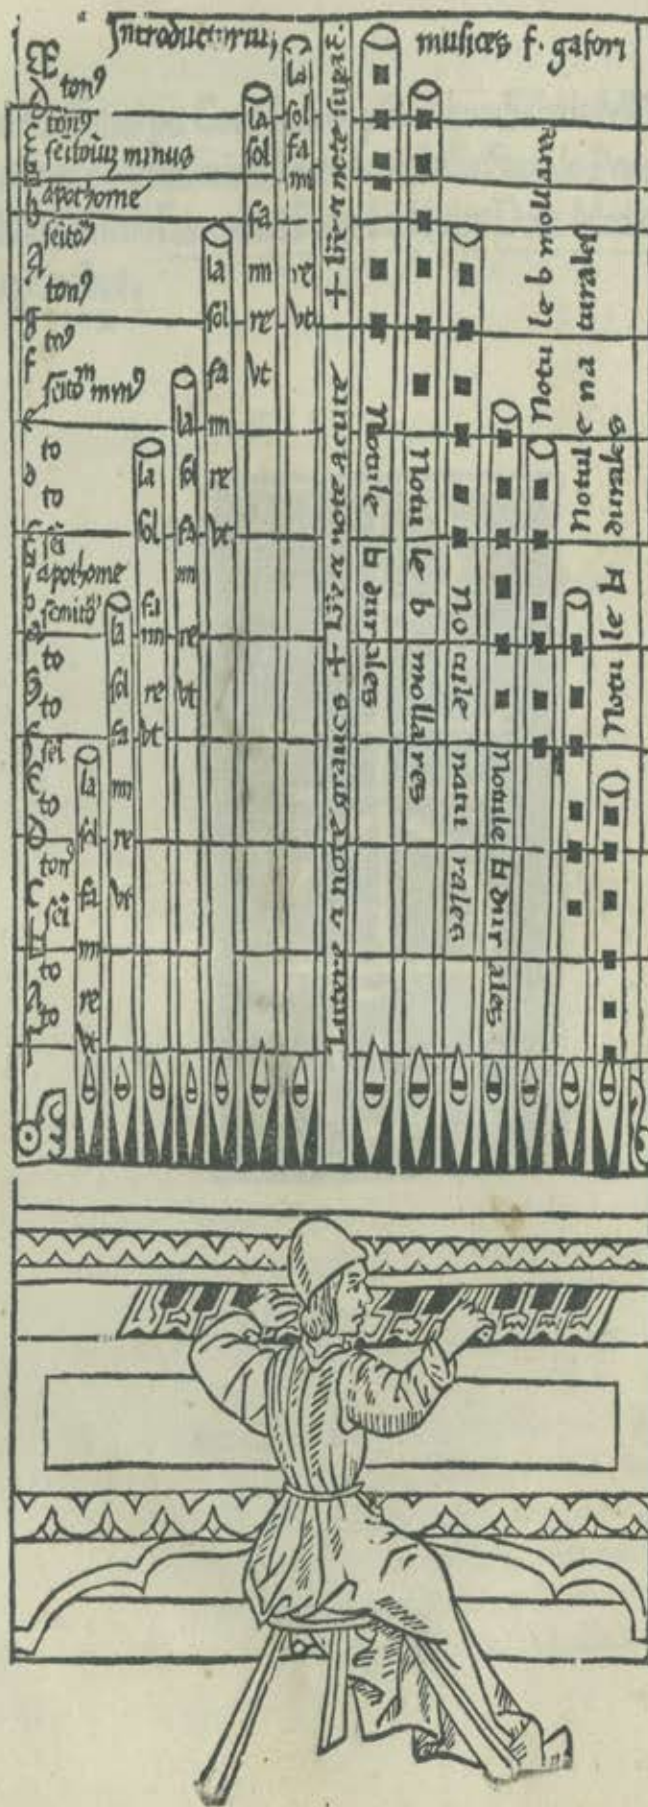 Introductoriu,
musices f. gafori
E
ton⁹
ton⁹
seitoiu minus
apothome
seito
A
ton⁹
g
to⁹
f
seito m m⁹
e
to
d
to
c
sei
apothome
b
semito⁹
a
to
G
to
F
sei
E
to
D
ton⁹
C
sei
to
A
to
la
sol
fa
mi
re
vt
la
sol
fa
mi
re
vt
la
sol
fa
mi
re
vt
la
sol
fa
mi
re
vt
la
sol
fa
mi
re
vt
la
sol
fa
mi
re
vt
la
sol
fa
mi
re
vt
note graues + note acute + note
Notule ♮ durales
Notule b mollares
Notule naturales
Notule ♮ durales
Notule b mollares
Notule naturales
Notule ♮ durales